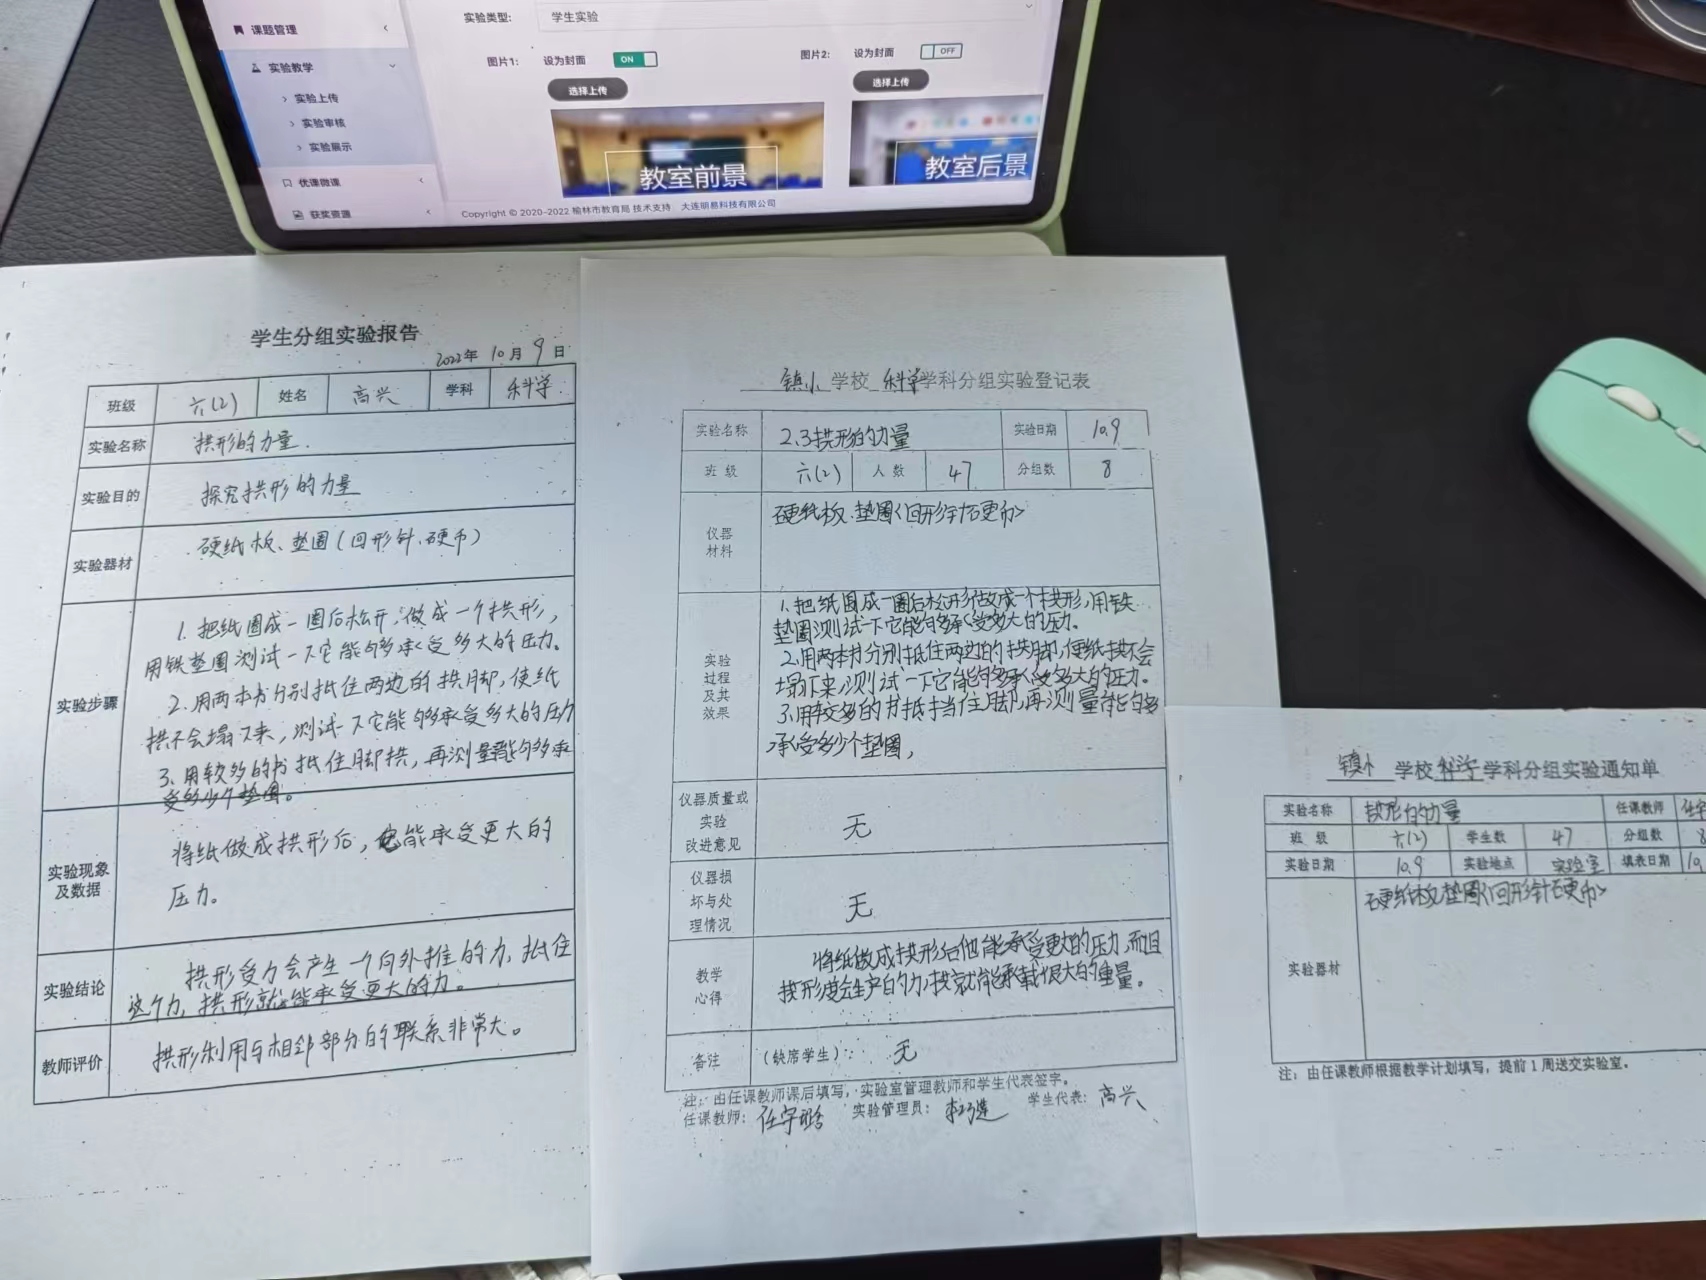 课题管理
实验教学
实验上传
实验审核
实验展示
优课微课
获奖资源
实验类型: 学生实验
图片1: 设为封面 ON
图片2: 设为封面 OFF
选择上传
选择上传
教室前景
教室后景
Copyright © 2020-2022 榆林市教育局 技术支持 大连明易科技有限公司
学生分组实验报告
2022年 10月 9日
班级 六(2) 姓名 高兴 学科 科学
实验名称 拱形的力量.
实验目的 探究拱形的力量
实验器材 硬纸板、垫圈(回形针、硬币)
实验步骤
1. 把纸圈成一圈后松开,做成一个拱形,
用铁垫圈测试一下它能够承受多大的压力.
2. 用两本书分别抵住两边的拱脚,使纸
拱不会塌下来,测试一下它能够承受多大的压力
3、用较多的书抵住脚拱,再测量能够承
受多少个垫圈。
实验现象
及数据
将纸做成拱形后,也能承受更大的
压力。
实验结论
拱形受力会产生一个向外推的力,抵住
这个力,拱形就能承受更大的力。
教师评价 拱形利用与相邻部分的联系非常大。
镇小 学校 科学 学科分组实验登记表
实验名称 2.3拱形的力量 实验日期 10.9
班级 六(2) 人数 47 分组数 8
仪器
材料
硬纸板.垫圈<回形针硬币>
实验
过程
及其
效果
1.把纸圈成一圈后松形做成一个拱形,用铁
垫圈测试一下它能够承受多大的压力.
2.用两本书分别抵住两边的拱脚,使纸拱不会
塌下来,测试一下它能够承受多大的压力.
3.用较多的书抵挡住脚,再测量能够
承受多少个垫圈,
仪器质量或
实验
改进意见
无
仪器损
坏与处
理情况
无
教学
心得
将纸做成拱形后他能承受更大的压力,而且
拱形度会生产白的力,拱就能承载很大的重量。
备注 (缺席学生): 无
注:由任课教师课后填写,实验室管理教师和学生代表签字。
任课教师: 实验管理员: 学生代表: 高兴
镇小 学校 科学 学科分组实验通知单
实验名称 拱形的力量 任课教师
班级 六(2) 学生数 47 分组数 8
实验日期 10.9 实验地点 实验室 填表日期 10.
实验器材
硬纸板.垫圈<回形针硬币>
注:由任课教师根据教学计划填写,提前1周送交实验室。